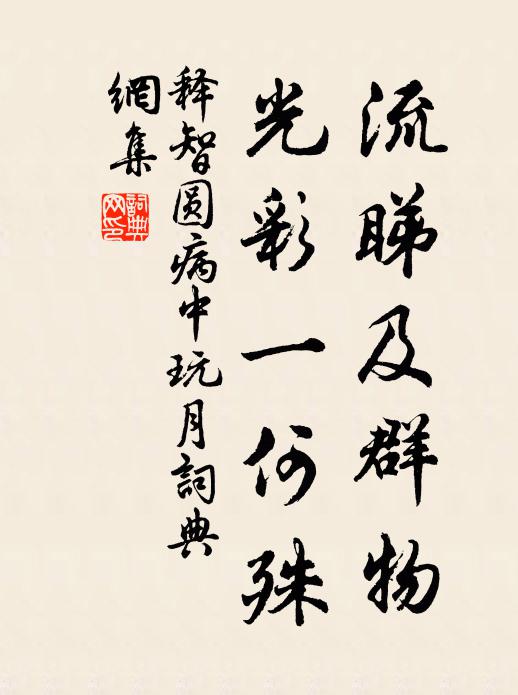 流睇及群物
光彩一何殊
释智圆病中玩月詞典
網集
詞典
网印